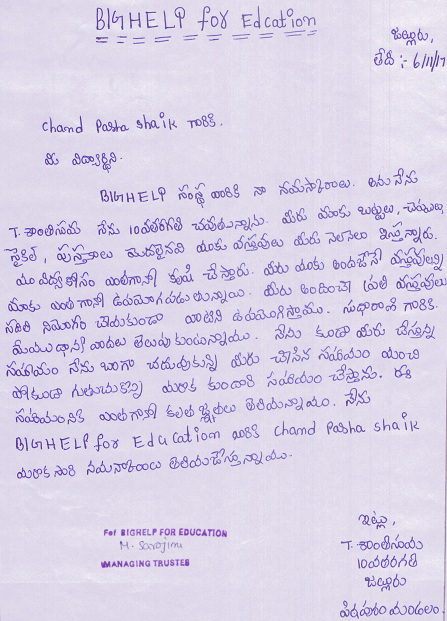 BIGHELP for Edcation
జల్లూరు,
తేదీ :- 6/11/17
Chand Pasha Shaik గారికి.
మీ విద్యార్థిని.
BIGHELP సంస్థ వారికి నా నమస్కారాలు. అను నేను
T. శాంతిసుమ నేను 10వతరగతి చదువుతున్నాను. మీరు మాకు బుట్టలు, చెప్పులు
సైకిల్, పుస్తకాలు మొదలైనవి మాకు వస్తువులు మీరు నెలనెలా ఇస్తున్నారు.
మా విద్య కోసం ఎంతగానో కృషి చేస్తారు. మీరు మాకు అందజేసే వస్తువులన్ని
మాకు ఎంతగానో ఉపయోగపడుతున్నాయి. మీరు అందించే ప్రతి వస్తువులు
వాటిని ఉపయోగిస్తాము. సుధారాణి గారికి.
మేము ధాన్యవాదలు తెలుపుకుంటున్నాము. నేను కూడా మీరు చేస్తున్న
సహాయం నేను బాగా చదువుకున్ని మీరు చేసిన సహాయం మంచి
పోకుండా గుర్తుచుకొన్ని మరొక కుందారి సహాయం చేస్తాను. ఈ
సహాయంనికి ఎంతగానో కృతజ్ఞతలు తెలియన్నాము. నేను
BIGHELP for Education వారికి Chand Pasha shaik
మరొక సారి నమస్కారాలు తెలియజేస్తున్నాము.
For BIGHELP FOR EDUCATION
M. Sarojini
MANAGING TRUSTEE
ఇట్లు,
T. శాంతిసుమ
10వతరగతి
జల్లూరు
పిఠాపురం మండలం.